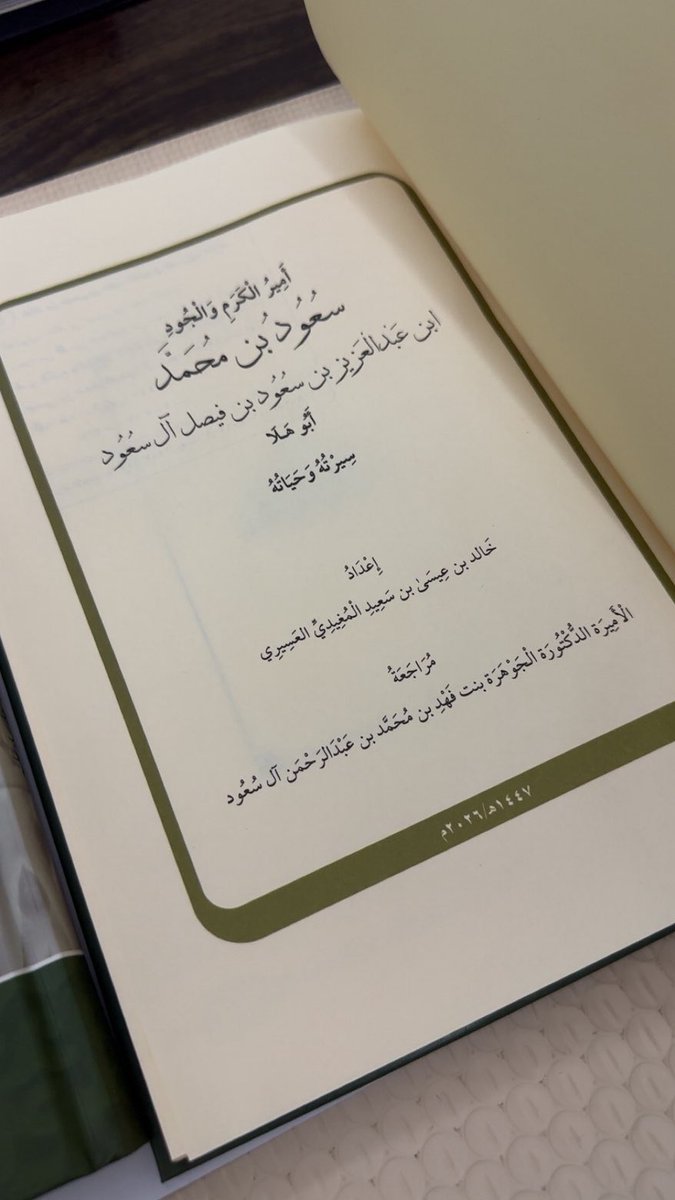 أَمِيرُ الْكَرَمِ وَالْجُودِ
سُعُودُ بْنُ مُحَمَّدِ
ابن عَبْدِالْعَزِيزِ بن سُعُود بن فيصل آل سُعُود
أَبُو هَلَا
سِيرْتُهُ وَحَيَاتُهُ
إِعْدَادُ
خَالد بن عِيسَىٰ بن سَعِيدِ الْمُغِيدِيِّ العَسِيرِي
مُرَاجَعَةُ
الْأَمِيرَة الدُّكْتُورَة الْجَوْهَرَة بنت فَهْدِ بن مُحَمَّد بن عَبْدَالرَحْمَن آل سُعُود
١٤٤٧هـ/٢٠٢٦م